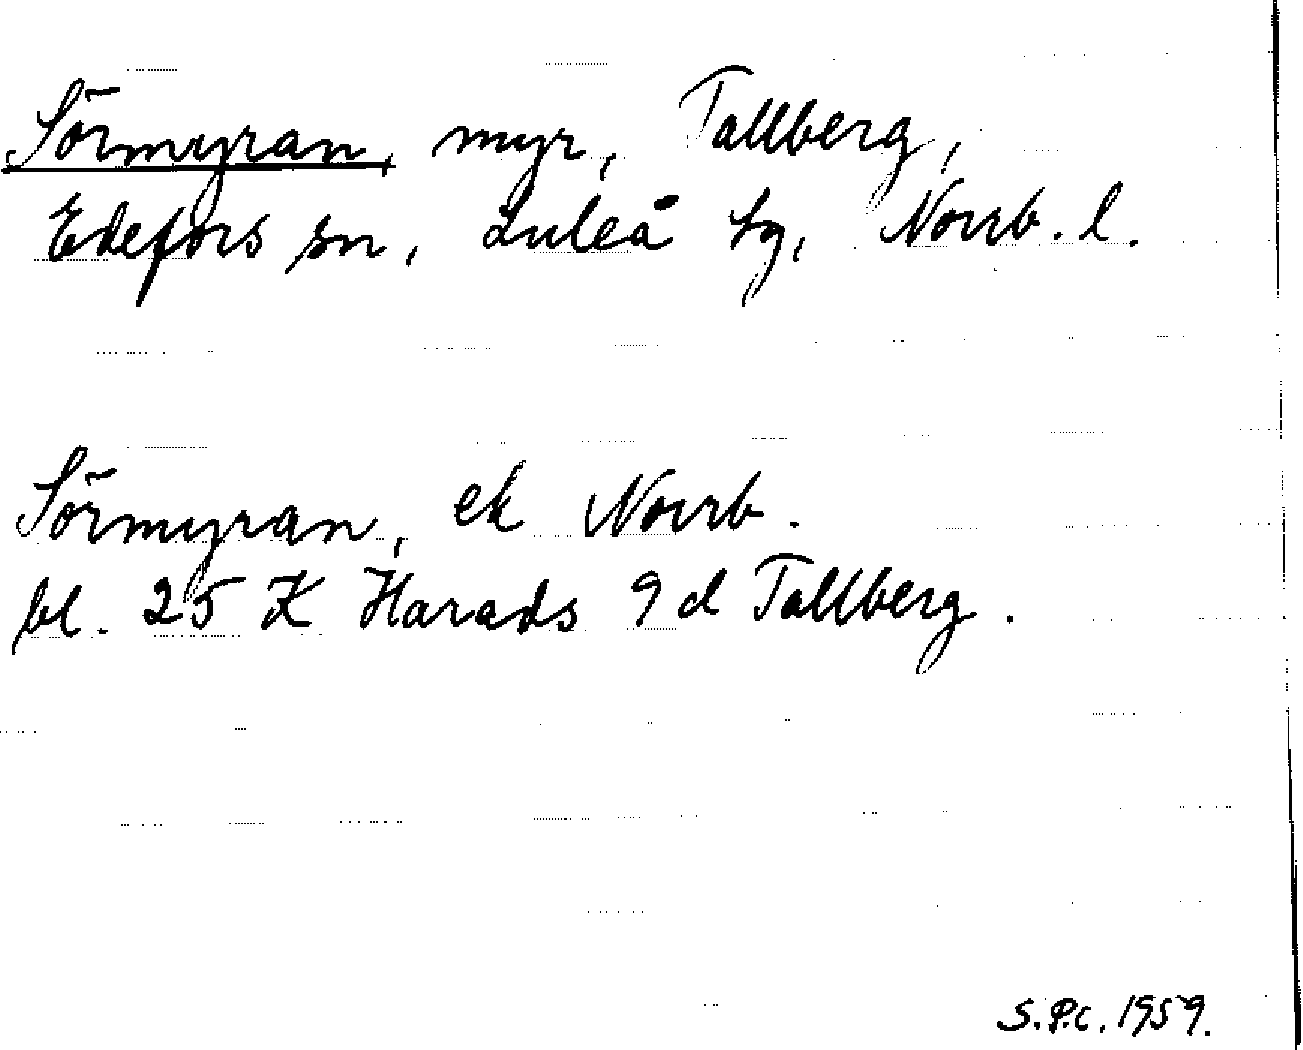 Sörmyran, myr, Tallberg,
Edefors sn, Luleå tg, Norrb. l.
Sörmyran, ek Norrb.
bl. 25 K Harads 9 d Tallberg.
S.P.C. 1959.